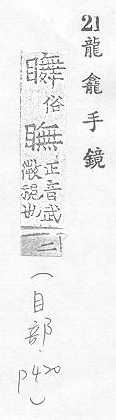 21 龍龕手鏡
俗瞴正音武微視也二
(目部, p420)